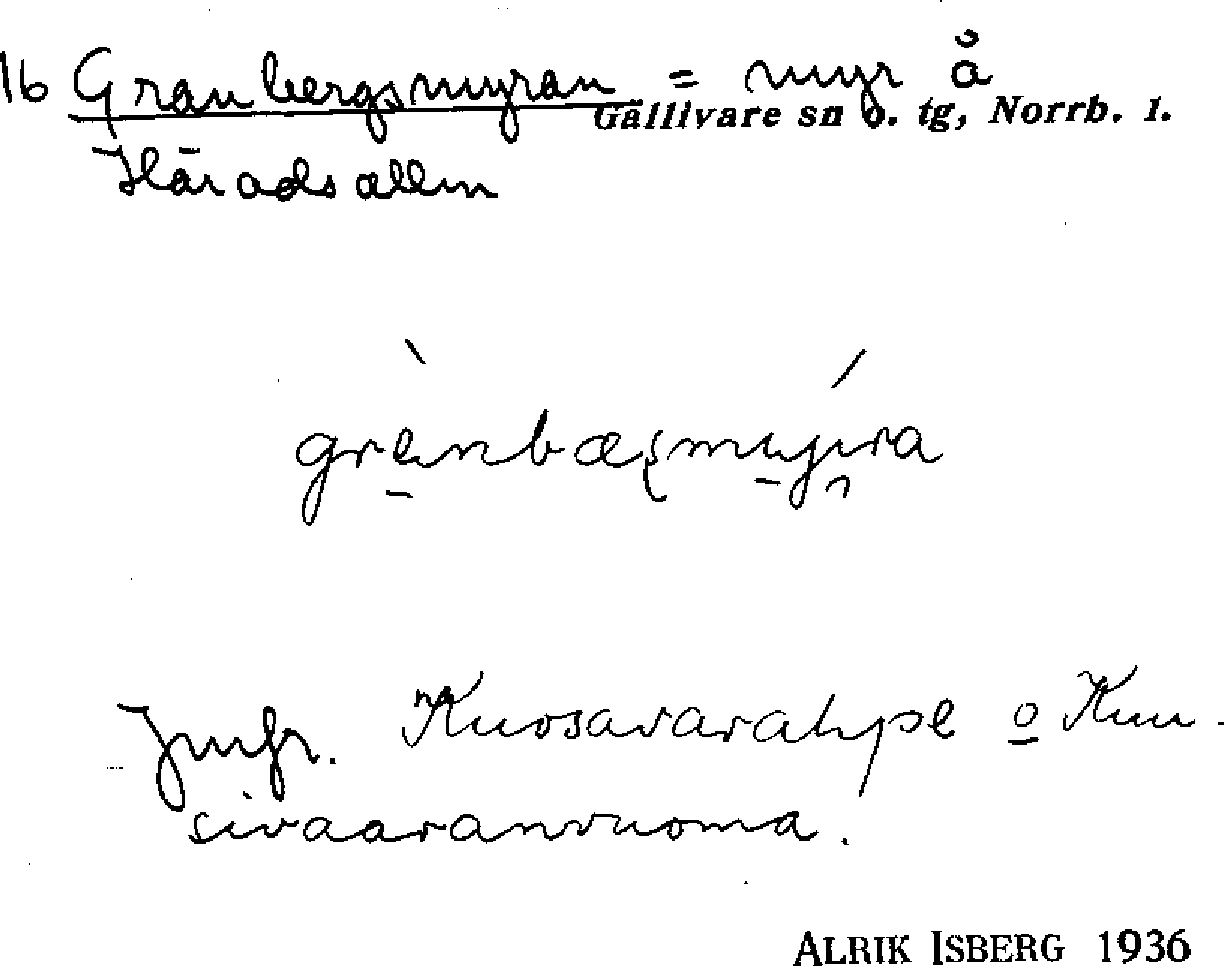 16 Granbergsmyran = myr å
Gällivare sn o. tg, Norrb. l.
Häradsallm
Jmfr. Kuosavaratjpe o Kuu-
sivaaranvuoma.
ALRIK ISBERG 1936